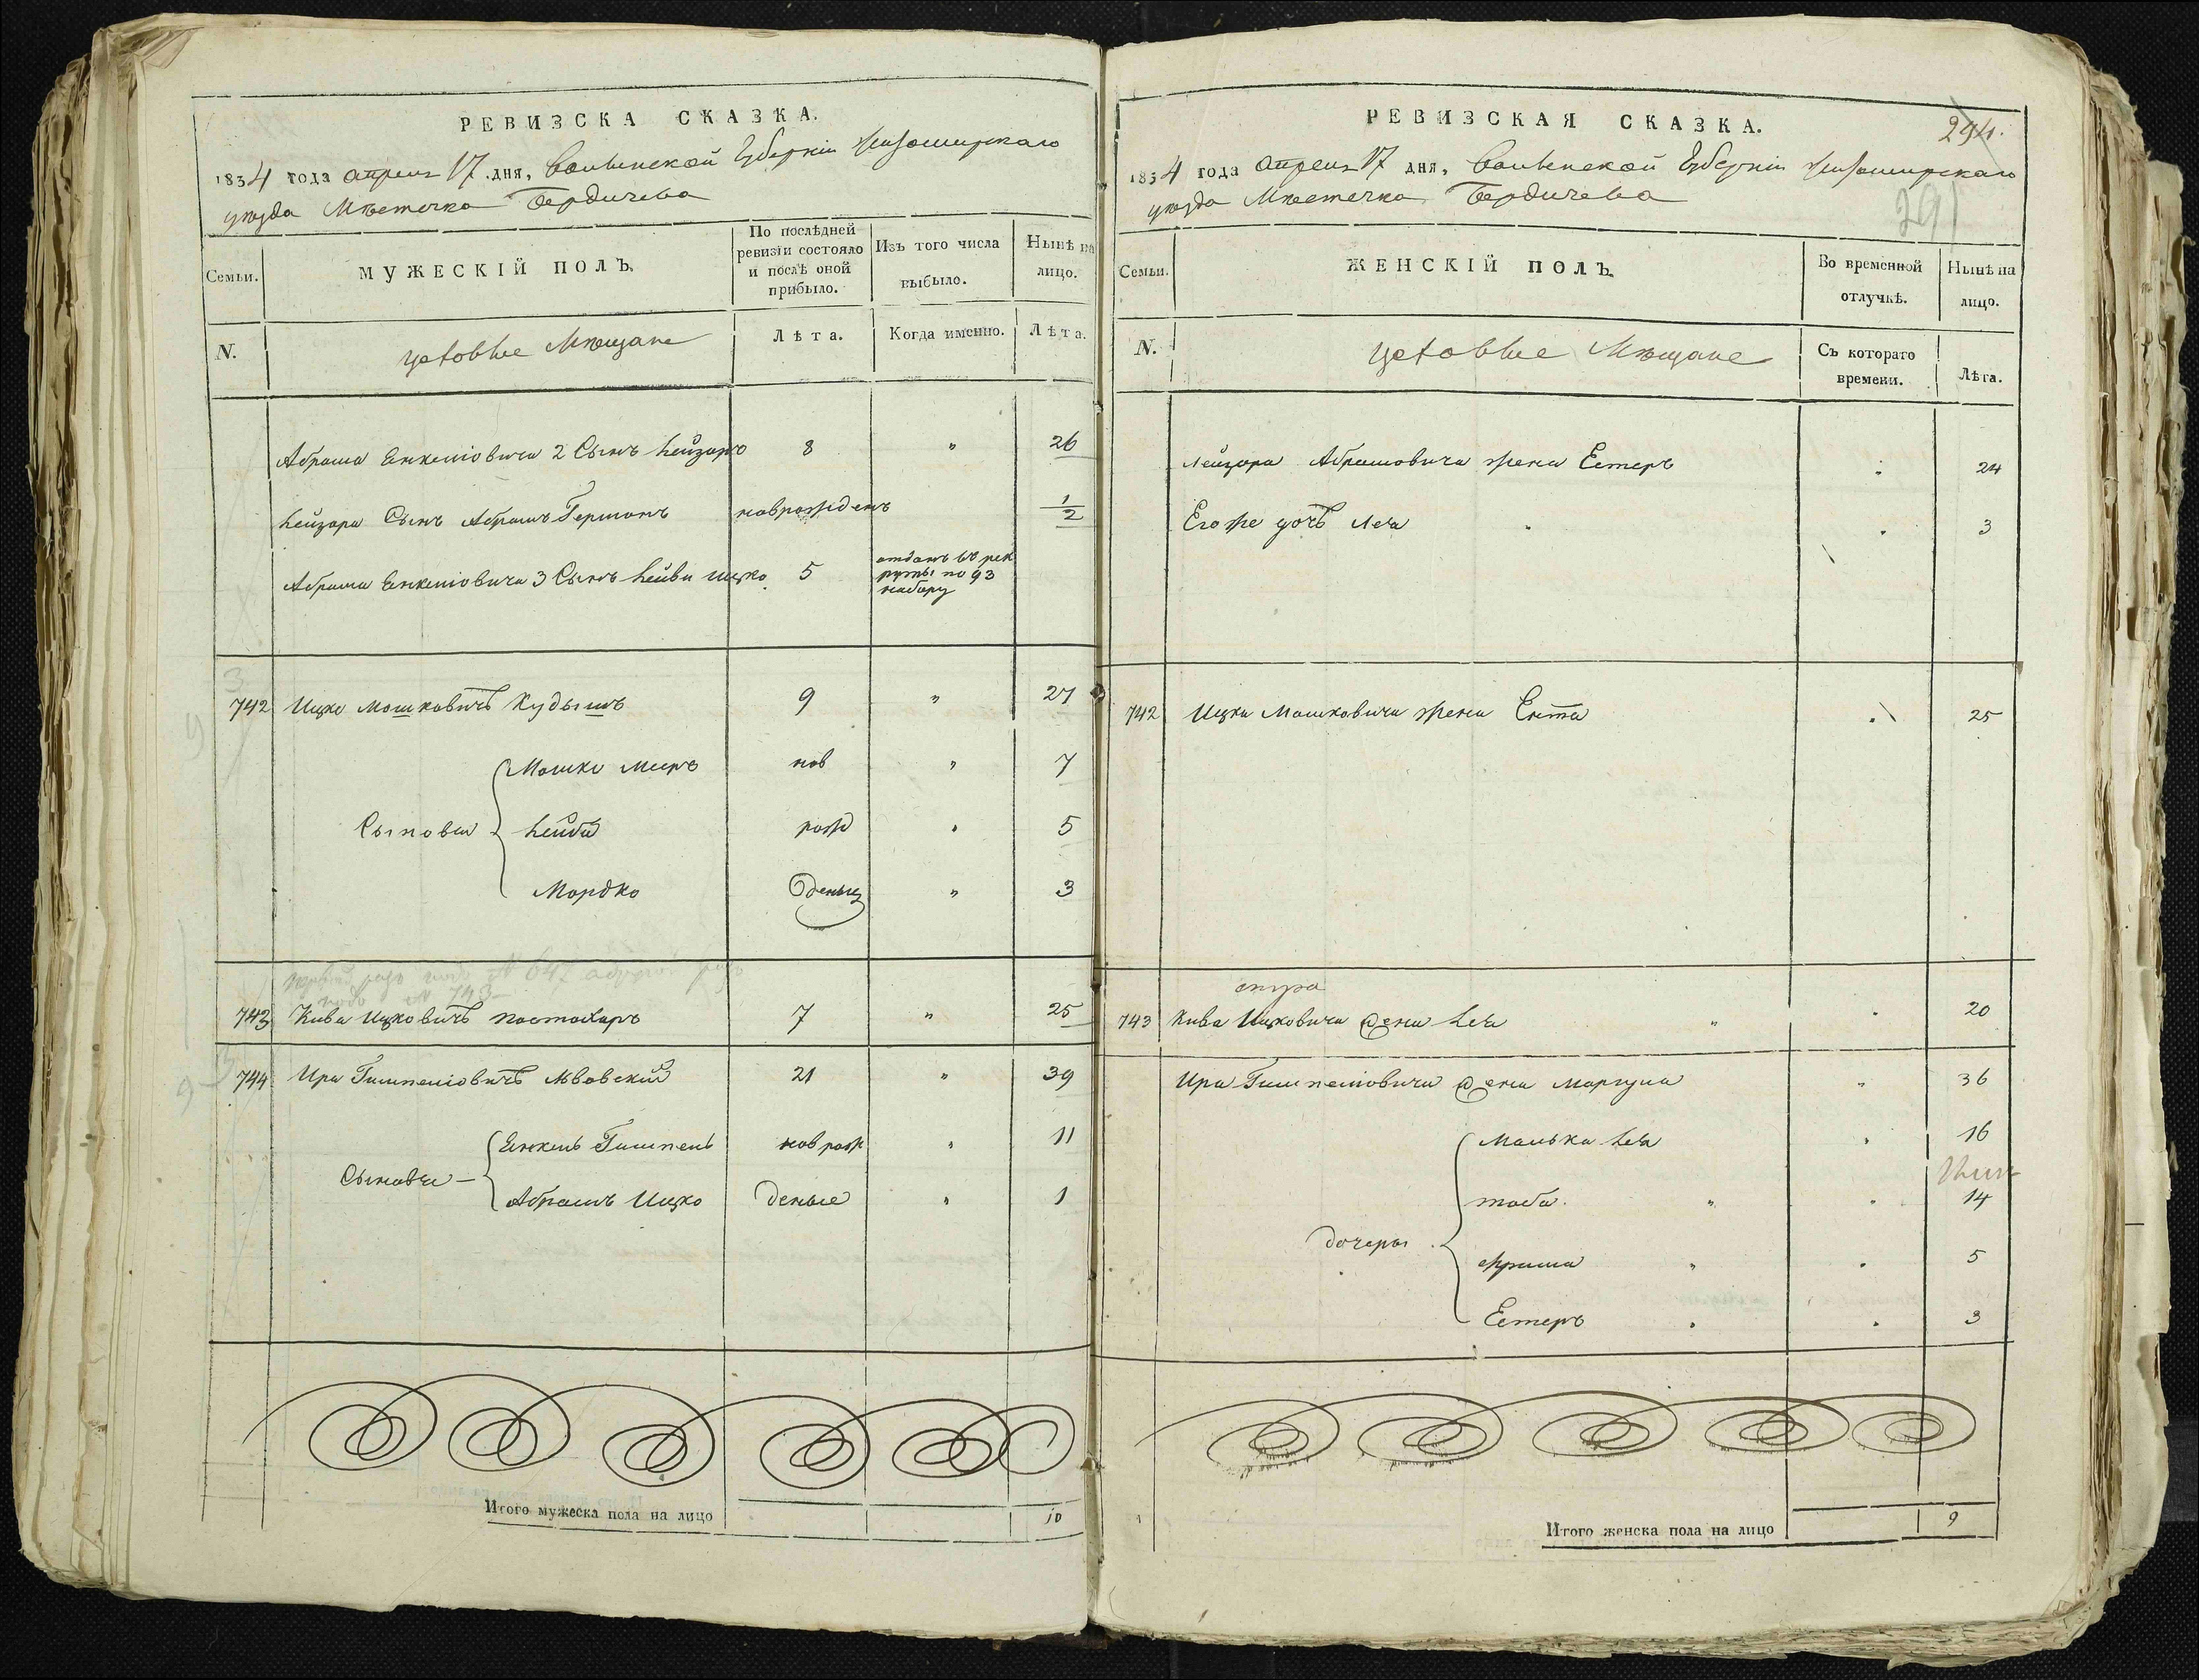 РЕВИЗСКА СКАЗКА.
1834 года апреля 17 дня, Волынской Губерніи Житомирскаго
уѣзда Мѣстечка Бердичева
Семьи.
МУЖЕСКІЙ ПОЛЪ.
По послѣдней
ревизіи состояло
и послѣ оной
прибыло.
Изъ того числа
выбыло.
Нынѣ на
лицо.
N.
цеховые Мѣщане
Лѣта.
Когда именно.
Лѣта.
Абрама Янкеліовича 2 Сынъ Лейзоръ 8 " 26
Лейзора Сынъ Абрамъ Гершонъ новрожденъ 1/2
Абрама Янкеліовича 3 Сынъ Лейба Ицко 5 отданъ въ рек
руты по 93
набору
742 Ицко Мошковичъ Кудышъ 9 " 27
Мошко Меєръ нов " 7
Сыновья Лейба рож " 5
Мордко Деныи " 3
N 647
N 743
743 Кива Ицковичъ 7 " 25
744 Ира Гимпеліовичъ Львовскій 21 " 39
Янкель Гимпель новрож " 11
Сыновья
Абрамъ Ицко деные " 1
Итого мужеска пола на лицо 10
РЕВИЗСКАЯ СКАЗКА.
294.
1834 года апреля 17 дня, Волынской Губерніи Житомирскаго
уѣзда Мѣстечка Бердичева
291
Семьи.
ЖЕНСКІЙ ПОЛЪ.
Во временной
отлучкѣ.
Нынѣ на
лицо.
N.
цеховые Мѣщане
Съ котораго
времени.
Лѣта.
Лейзора Абрамовича жена Естеръ " 24
Его же дочь Лея " 3
742 Ицка Мошковича жена Ента " 25
743 Кива Ицковича жена Лея " 20
Ира Гимпеліовича жена " 36
Малька Лея " 16
тоба " " 14
Дочеры
" " 5
Естеръ " " 3
Итого женска пола на лицо 9